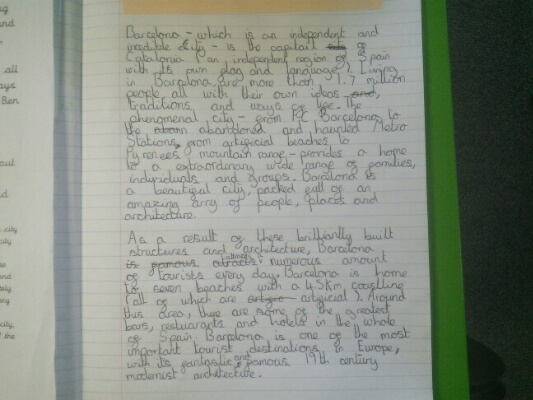 all
ays
Ben
out
city
Barcelona - which is an independent and
incredible city - is the capital of
Catalonia (an independent region of Spain
with its own flag and language). Living
in Barcelona are more than 1.7 million
people all with their own ideas,
traditions, and ways of life. The
phenomenal city - from FC Barcelona to
the abandoned and haunted Metro
Stations, from artificial beaches to
Pyrenees mountain range - provides a home
to a extraordinary wide range of families,
individuals and groups. Barcelona is
a beautiful city, packed full of an
amazing arry of people, places and
architecture.
As a result of these brilliantly built
structures and architecture, Barcelona
is famous attracts numerous amount
of tourists every day. Barcelona is home
to seven beaches with a 4.5km coastline
(all of which are artificial). Around
this area, there are some of the greatest
bars, restuarants and hotels in the whole
of Spain. Barcelona is one of the most
important tourist destinations in Europe,
with its fantastic and famous 19th century
modernist architecture.